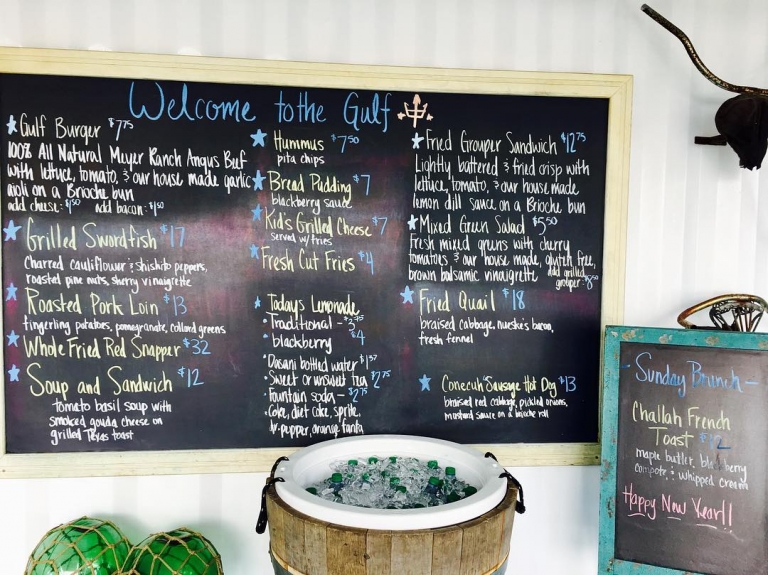 Welcome to the Gulf
Gulf Burger $7.75
100% All Natural Meyer Ranch Angus Beef
with lettuce, tomato, & our house made garlic
aioli on a Brioche bun
add cheese: $1.50 add bacon: $1.50
Grilled Swordfish $17
Charred cauliflower & shishito peppers,
roasted pine nuts, sherry vinaigrette
Roasted Pork Loin $13
fingerling potatoes, pomegranate, collard greens
Whole Fried Red Snapper $32
Soup and Sandwich $12
tomato basil soup with
smoked gouda cheese on
grilled Texas toast
Hummus $7.50
pita chips
Bread Pudding $7
blackberry sauce
Kid's Grilled Cheese $7
served w/fries
Fresh Cut Fries $4
Todays Lemonade
Traditional -
blackberry $4
Dasani bottled water $1.37
Sweet or unsweet tea $2.75
Fountain soda - $2.75
Coke, diet coke, sprite,
dr. pepper, orange fanta
Fried Grouper Sandwich $12.75
Lightly battered & fried crisp with
lettuce, tomato, & our house made
lemon dill sauce on a Brioche bun
Mixed Green Salad $5.50
Fresh mixed greens with cherry
tomatoes & our house made, gluten free,
brown balsamic vinaigrette add grilled
grouper: $8.50
Fried Quail $18
braised cabbage, nueske's bacon,
fresh fennel
Conecuh Sausage Hot Dog $13
braised red cabbage, pickled onions,
mustard sauce on a brioche roll
- Sunday Brunch -
Challah French
Toast $12
maple butter, blackberry
compote, & whipped cream
Happy New Year!!